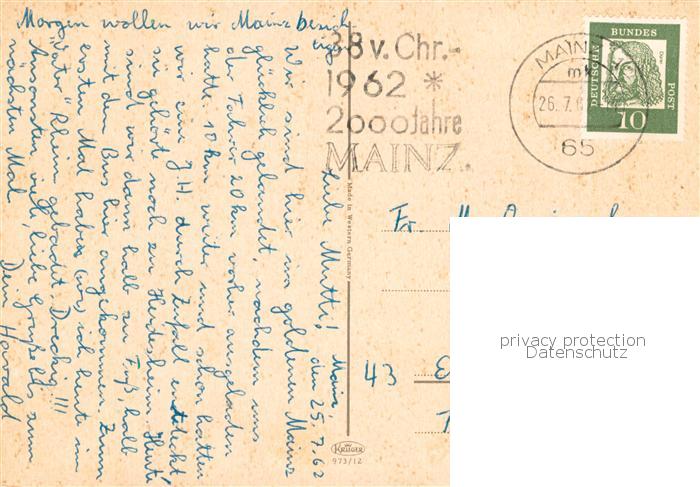 Morgen wollen wir Mainz besichtigen
Mainz, den 25.7.62
Liebe Mutti!
Wir sind hier im goldenen Mainz
glücklich gelandet, nachdem uns
der Fahrer 20 km vorher ausgeladen
hatte. 10 km weiter und schon hatten
wir eine J.H. durch Zufall entdeckt
gehört noch zu Heidesheim. Heute
sind wir dann halb zu Fuß, halb
mit dem Bus hier angekommen. Zum
ersten Mal habe (wir) ich heute im
"Vater" Rhein gebadet. Dreckig!!!
Ansonsten viele liebe Grüße bis zum
nächsten Mal
Dein Harald
38 v. Chr.-
1962 *
2000 Jahre
MAINZ.
MAINZ
26.7.6
65
DEUTSCHE BUNDESPOST
Dürer
10
Made in Western Germany
Fr.
43
KRÜGER
973/12
privacy protection
Datenschutz